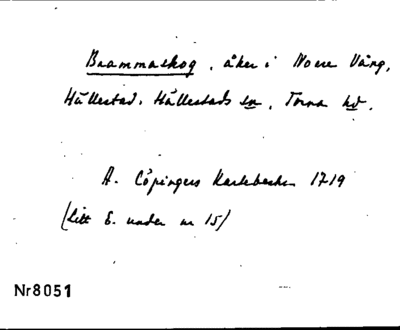 Brammaskog, åker i Norre Vång,
Hällestad, Hällestads sn, Torna hd.
A. Cöpingers Kartebeskr. 1719
(litt E. under nr 15)
Nr8051